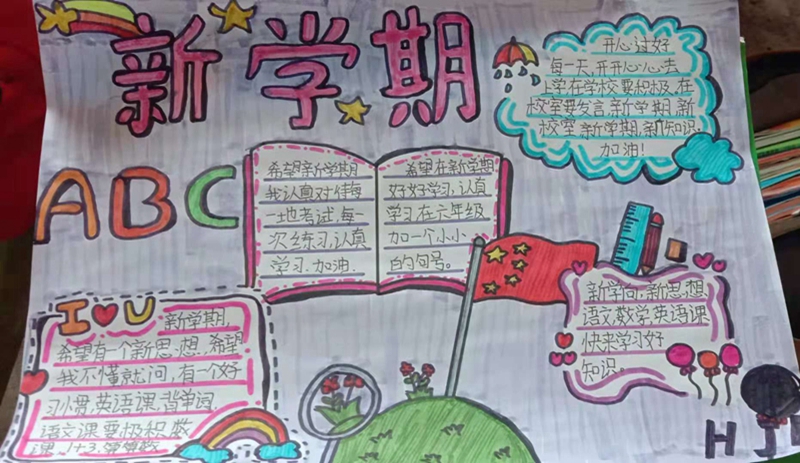 新学期
开心过好
每一天,开开心心去
上学在学校要积极,在
校室要发言,新学期,新
校室,新学期,新知识.
加油!
ABC
希望新学期
我认真对待每
一地考试,每一
次练习,认真
学习.加油.
希望在新学期
好好学习,认真
学习在六年级
加一个小小
的句号。
新学向,新思想
语文,数学,英语课
快来学习好
知识。
I U 新学期,
希望有一个新思想,希望
我不懂就问,有一个好
习惯,英语课,背单词.
语文课要极积数
课
H J